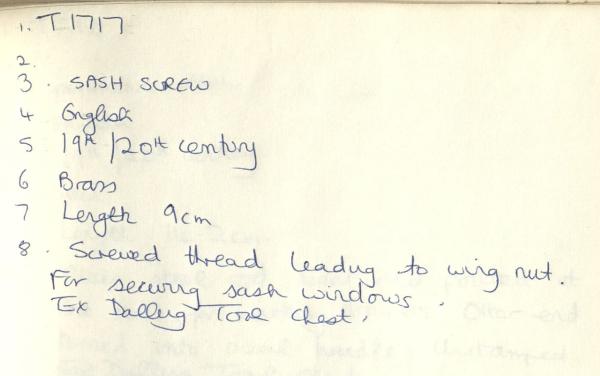 1. T1717
2.
3. SASH SCREW
4 English
5 19th/20th century
6 Brass
7 Length 9cm
8. Screwed thread leading to wing nut.
For securing sash windows.
Ex Dalling Tool Chest.